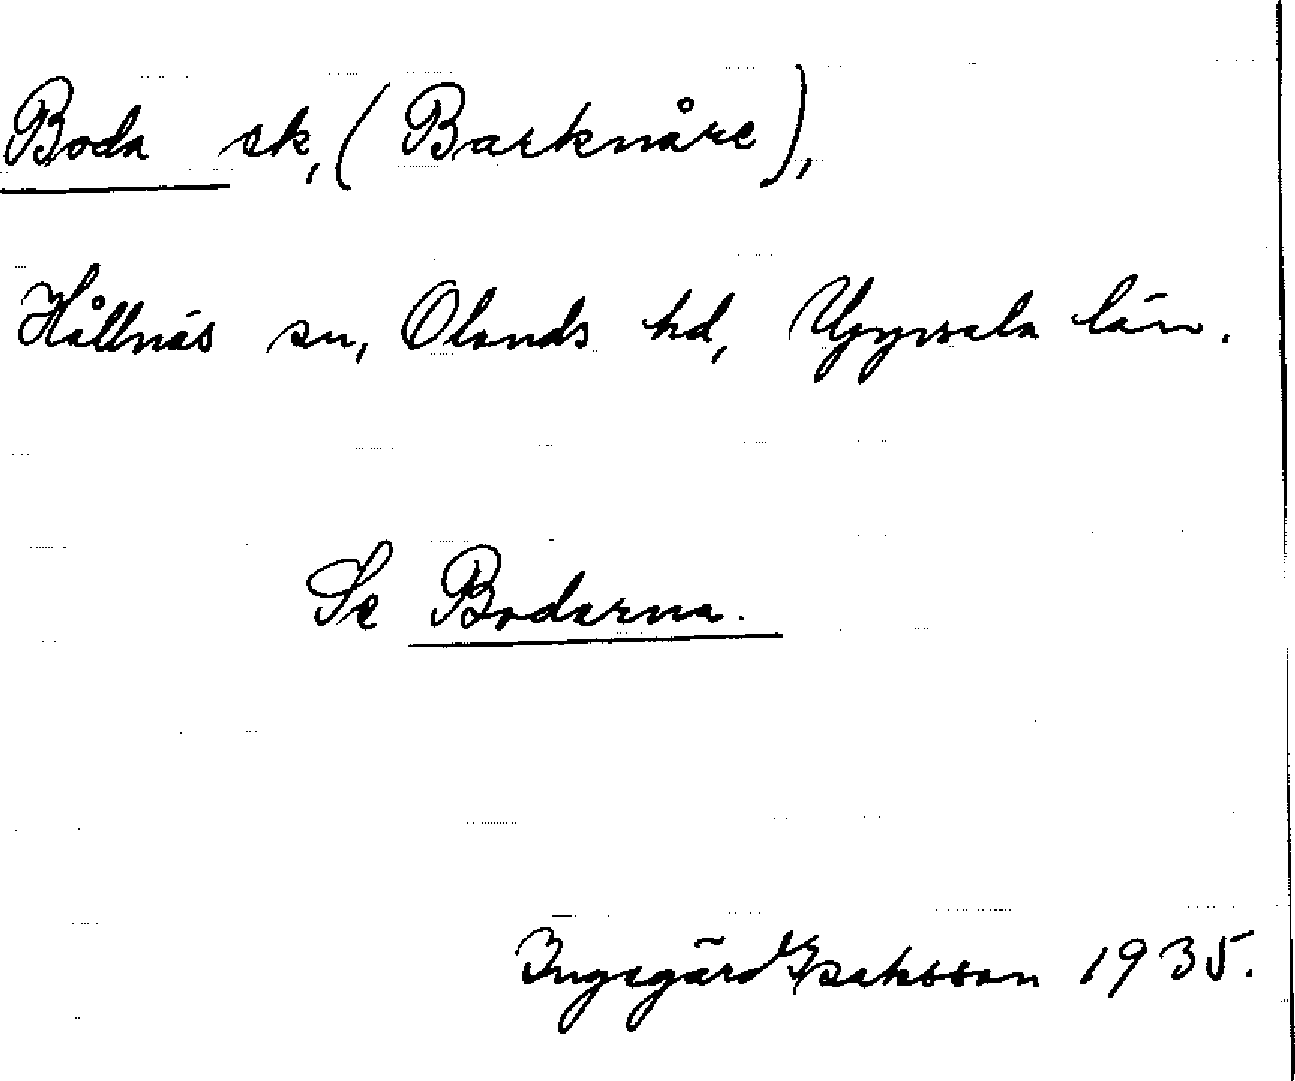 Boda sk, (Barknåre),
Hållnäs sn, Olands hd, Uppsala län.
Se Bodarna.
Ingegärd Isaksson 1935.